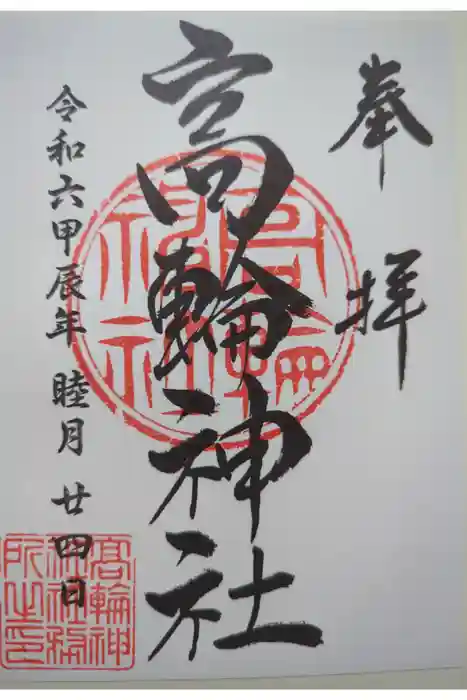 奉拝
高輪神社
令和六甲辰年 睦月 廿四日
高輪神
社務
所之印